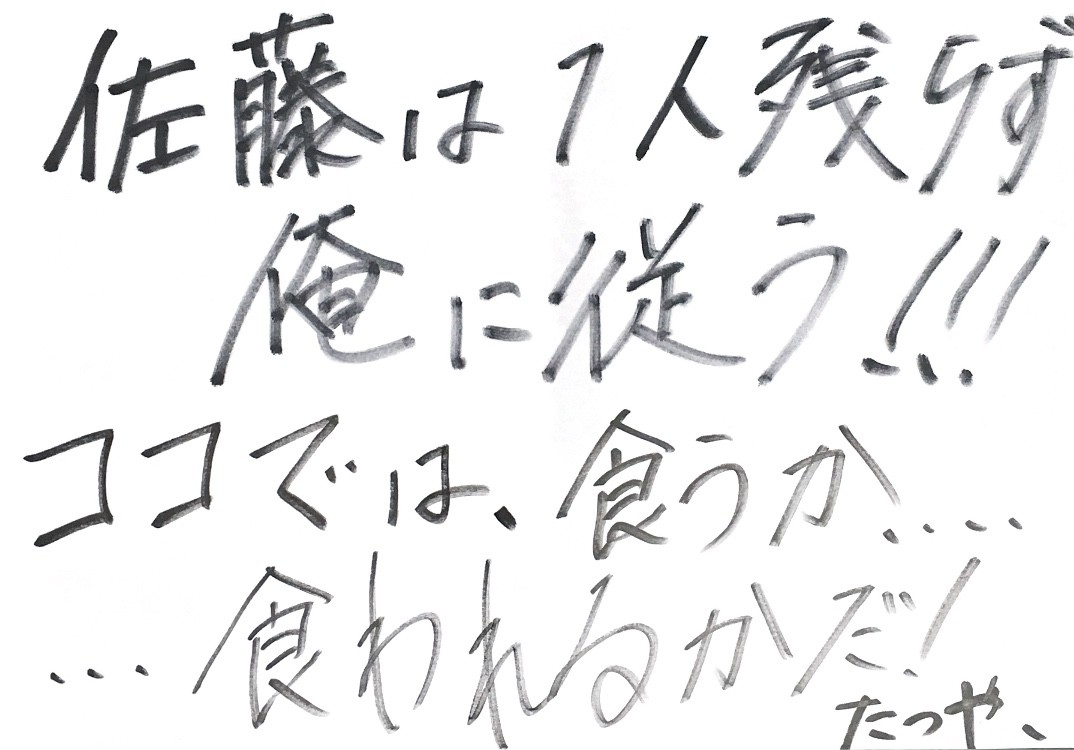 佐藤は1人残らず
俺に従う!!!
ココでは、食うか....
...食われるかだ!
たつや、